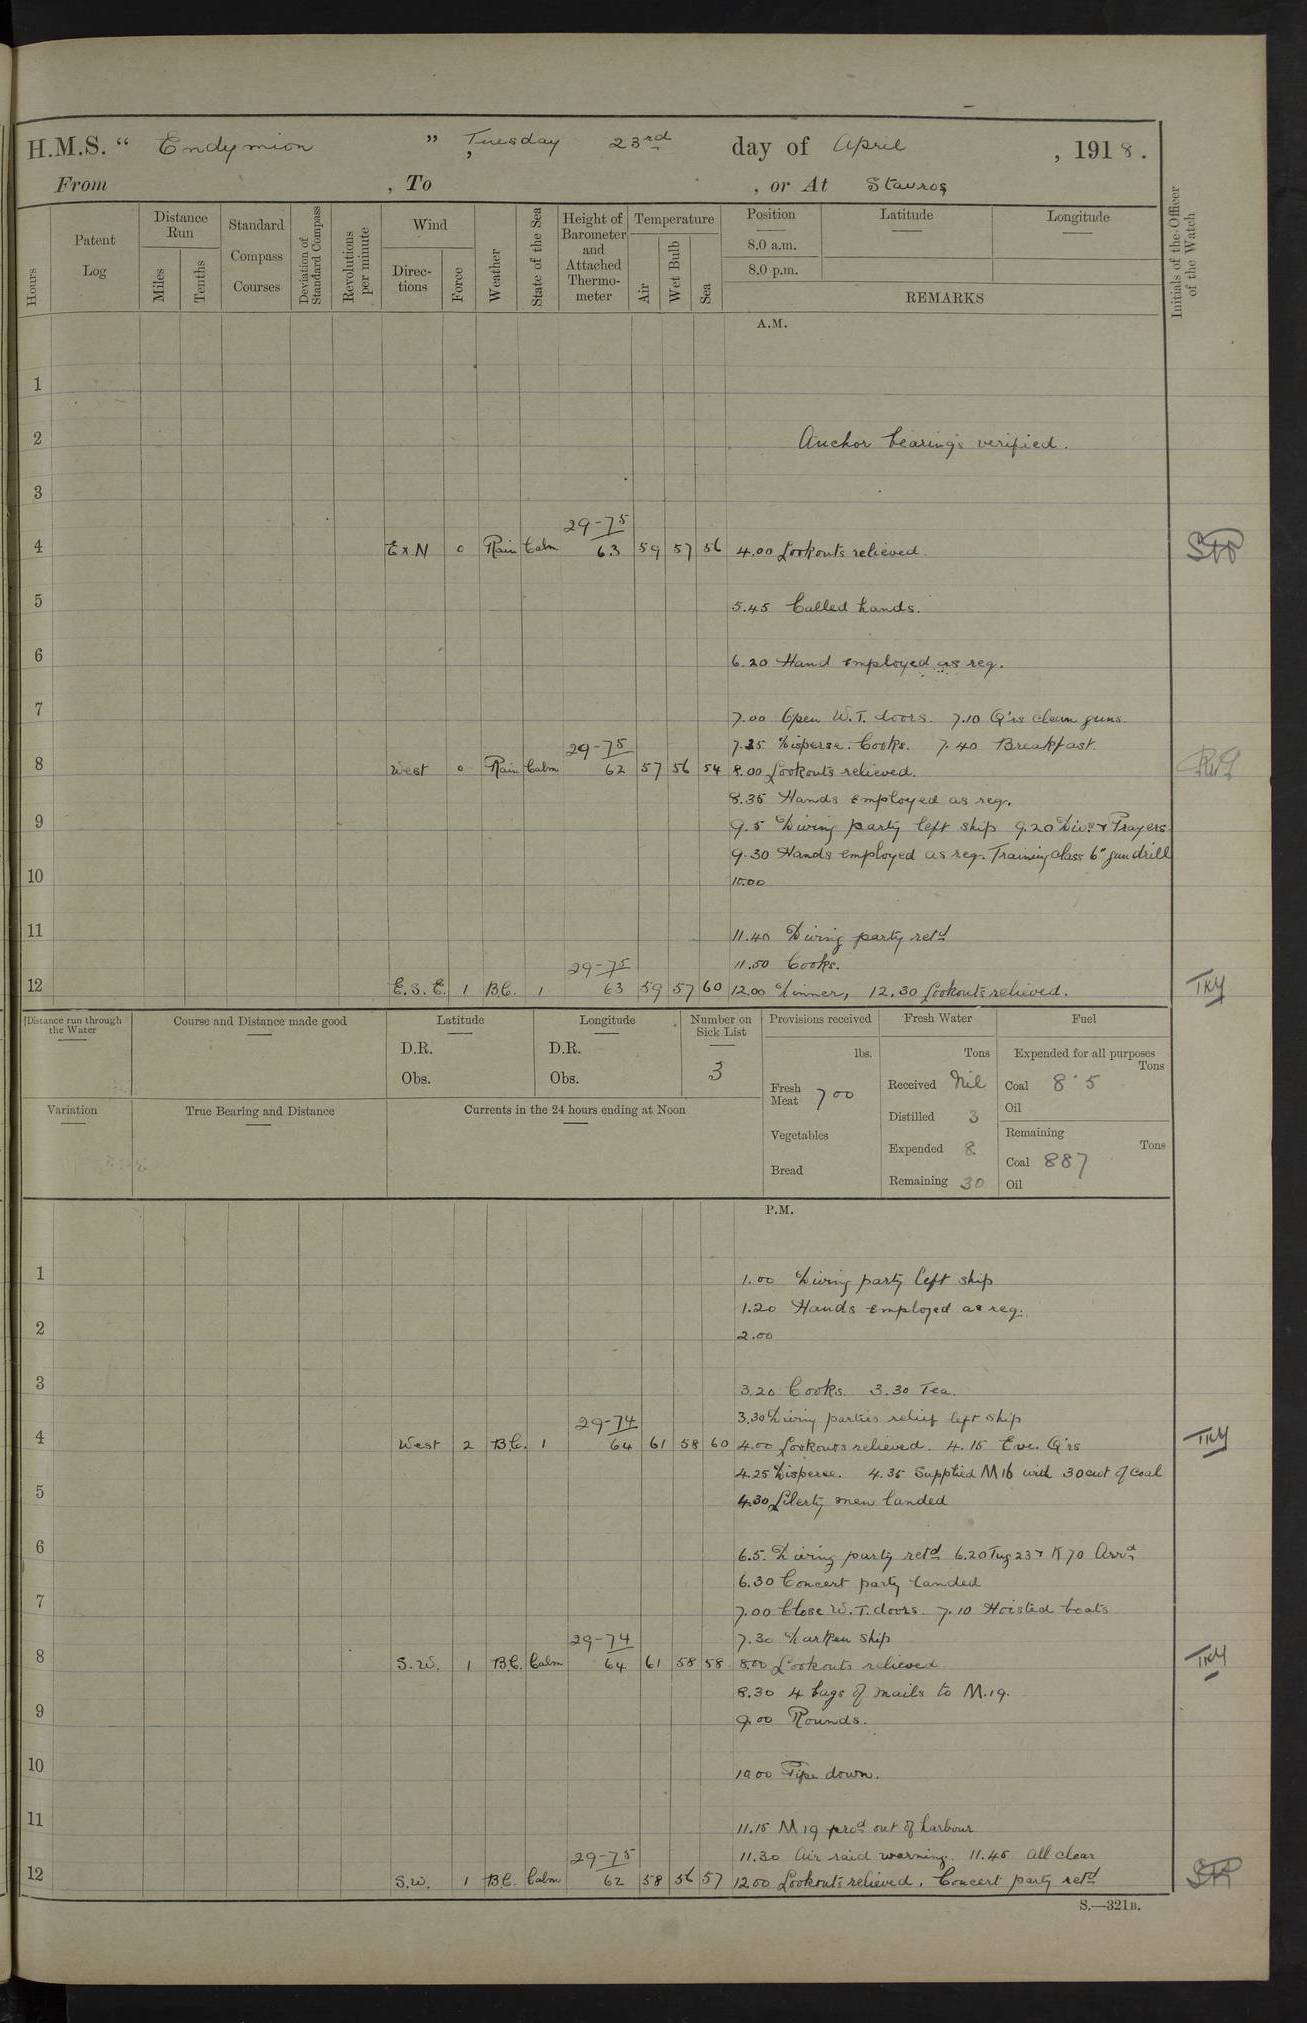 H.M.S. “ Endymion ” , Tuesday 23rd day of April , 1918 .
From , To , or At Stavros
Hours
Patent Log
Distance Run
Miles
Tenths
Standard Compass Courses
Deviation of Standard Compass
Revolutions per minute
Wind
Directions
Force
Weather
State of the Sea
Height of Barometer and Attached Thermometer
Temperature
Air
Wet Bulb
Sea
Position
8.0 a.m.
8.0 p.m.
Latitude
Longitude
REMARKS
Initials of the Officer of the Watch
A.M.
1
2 Anchor bearings verified.
3
29-75
4 E x N 0 Rain Calm 63 59 57 56 4.00 Lookouts relieved
5 5.45 Called hands.
6 6.20 Hand employed as req.
7 7.00 Open W.T. doors. 7.10 Q'rs clean guns
29-75 7.35 Disperse. Cooks. 7.40 Breakfast.
8 West 0 Rain Calm 62 57 56 54 8.00 Lookouts relieved.
8.35 Hands employed as req.
9 9.5 Diving party left ship 9.20 Divs. & Prayers
9.30 Hands employed as req. Training class 6" gun drill
10 10.00
11 11.40 Diving party retd
29-75 11.50 Cooks.
12 E.S.E. 1 B.C. 1 63 59 57 60 12.00 Dinner, 12.30 Lookouts relieved. TKY
Distance run through the Water
Course and Distance made good
Latitude
D.R.
Obs.
Longitude
D.R.
Obs.
Number on Sick List
3
Provisions received
lbs.
Fresh Meat 700
Vegetables
Bread
Fresh Water
Tons
Received Nil
Distilled 3
Expended 8
Remaining 30
Fuel
Expended for all purposes
Tons
Coal 8.5
Oil
Remaining
Tons
Coal 887
Oil
Variation
True Bearing and Distance
Currents in the 24 hours ending at Noon
P.M.
1 1.00 Diving party left ship
1.20 Hands employed as req.
2 2.00
3 3.20 Cooks 3.30 Tea.
29-74 3.30 Diving parties relief left ship
4 West 2 B.C. 1 64 61 58 60 4.00 Lookouts relieved. 4.15 Eve. Q'rs TKY
4.25 Disperse. 4.35 Supplied M16 with 30 cwt of coal
5 4.30 Liberty men landed
6 6.5. Diving party retd 6.20 Tug 23 & K70 Arrd
6.30 Concert party landed
7 7.00 Close W.T. doors 7.10 Hoisted boats
29-74 7.30 Darken ship
8 S.W. 1 B.C. Calm 64 61 58 58 8.00 Lookouts relieved TKY
8.30 4 bags of mails to M.19.
9 9.00 Rounds.
10 10.00 Pipe down.
11 11.15 M19 procd out of harbour
29-75 11.30 Air raid warning. 11.45 All clear
12 S.W. 1 B.C. Calm 62 58 56 57 12.00 Lookouts relieved, Concert party retd
S.—321B.